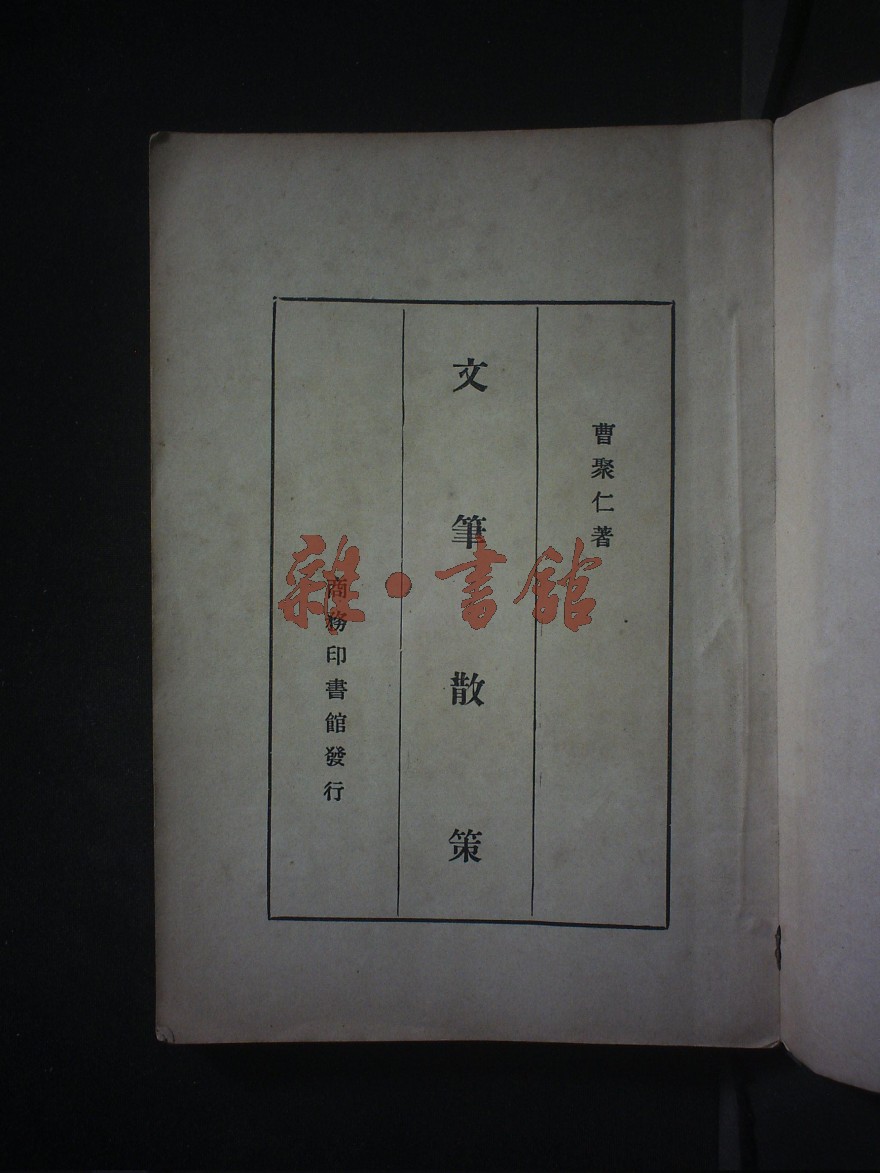 曹聚仁著
文筆散策
商務印書館發行
雜·書館